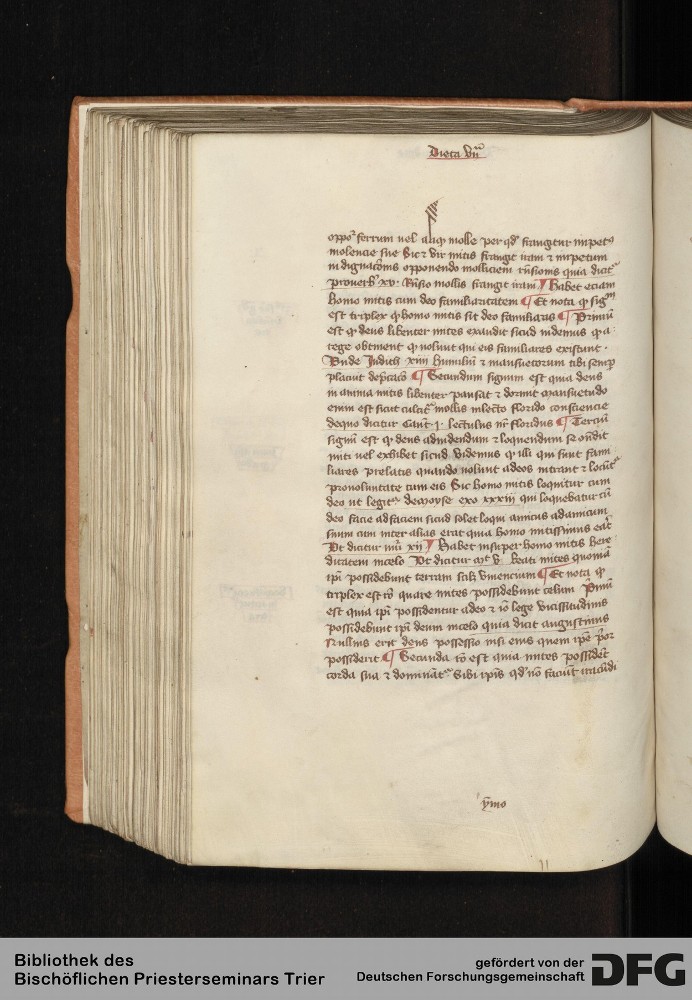 Dieta vii
oppoʳ ferrum uel aliqͥ molle per qd frangitur impetꝰ
molencie sue Sic vir mitis frangit iram ⁊ impetum
indignacōnis opponendo molliciem rn̄sionis quia dicitʳ
prouerb xv· Rn̄sio mollis frangit iram ¶ Habet eciam
homo mitis cum deo familiaritatem ¶ Et nota ꝙ signͫ
est triplex ꝙ homo mitis sit deo familiaris ¶ Primū
est ꝙ deus libenter mites exaudit sicud uidemus ꝙ a
rege obtinent ꝙ uolunt qui eis familiares existunt ·
Vnde Judith xiiii humiliū ⁊ mansuetorum tibi semp
placuit dep̄cacō ¶ Secundum signum est quia deus
in anima mitis libenter pausat ⁊ dormit Mansuetudo
enim est sicut culcitʳ mollis inlecto florido consciencie
dequo dicitur Cant̄ ·j· lectulus nr̄ floridus ¶ Terciū
signū est ꝙ deus aduidendum ⁊ loquendum se ondit
miti uel exhibet sicud videmus ꝙ illi qui sunt fami
liares prelatis quando uolunt adeos intrant ⁊ locūtʳ
prouoluntate cum eis Sic homo mitis loquitur cum
deo ut legitʳ demoyse exo xxxiii qui loquebatur cū
deo facie adfaciem sicud solet loqui amicus adamicum
suum cum inter alias erat quia homo mitissimus erat
Vt dicitur nūi xii ¶ Habet insuper homo mitis here
ditatem incelo Vt dicitur mt̄ v Beati mites quoniā
ipī possidebunt terram scilꝫ viuencium ¶ Et nota ꝙ
triplex est rō quare mites possidebunt celum Primū
est quia ipī possidentur adeo ⁊ iō lege vicissitudinis
possidebunt ipī deum incelo quia dicit augustinus
Nullius erit deus possessio nisi eius quem ipē prꝰ
possiderit ¶ Secunda rō est quia mites possidēt
corda sua ⁊ dominātʳ Sibi ipīs qd nō faciūt iracūdi
ymo
Bibliothek des
Bischöflichen Priesterseminars Trier
gefördert von der
Deutschen Forschungsgemeinschaft
DFG